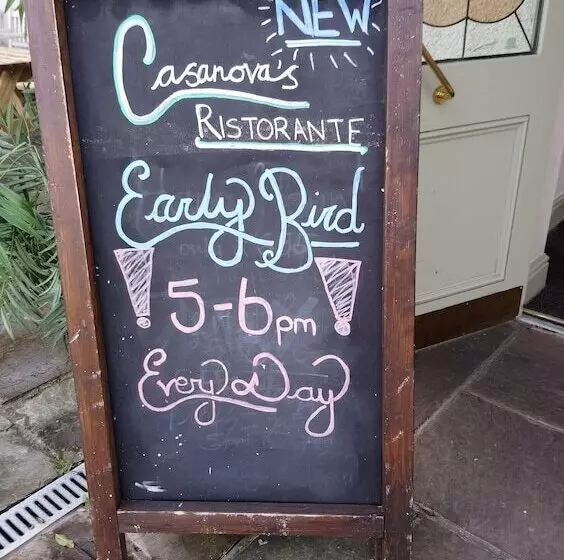 NEW
Casanova's
RISTORANTE
Early Bird
! 5-6pm !
Every Day